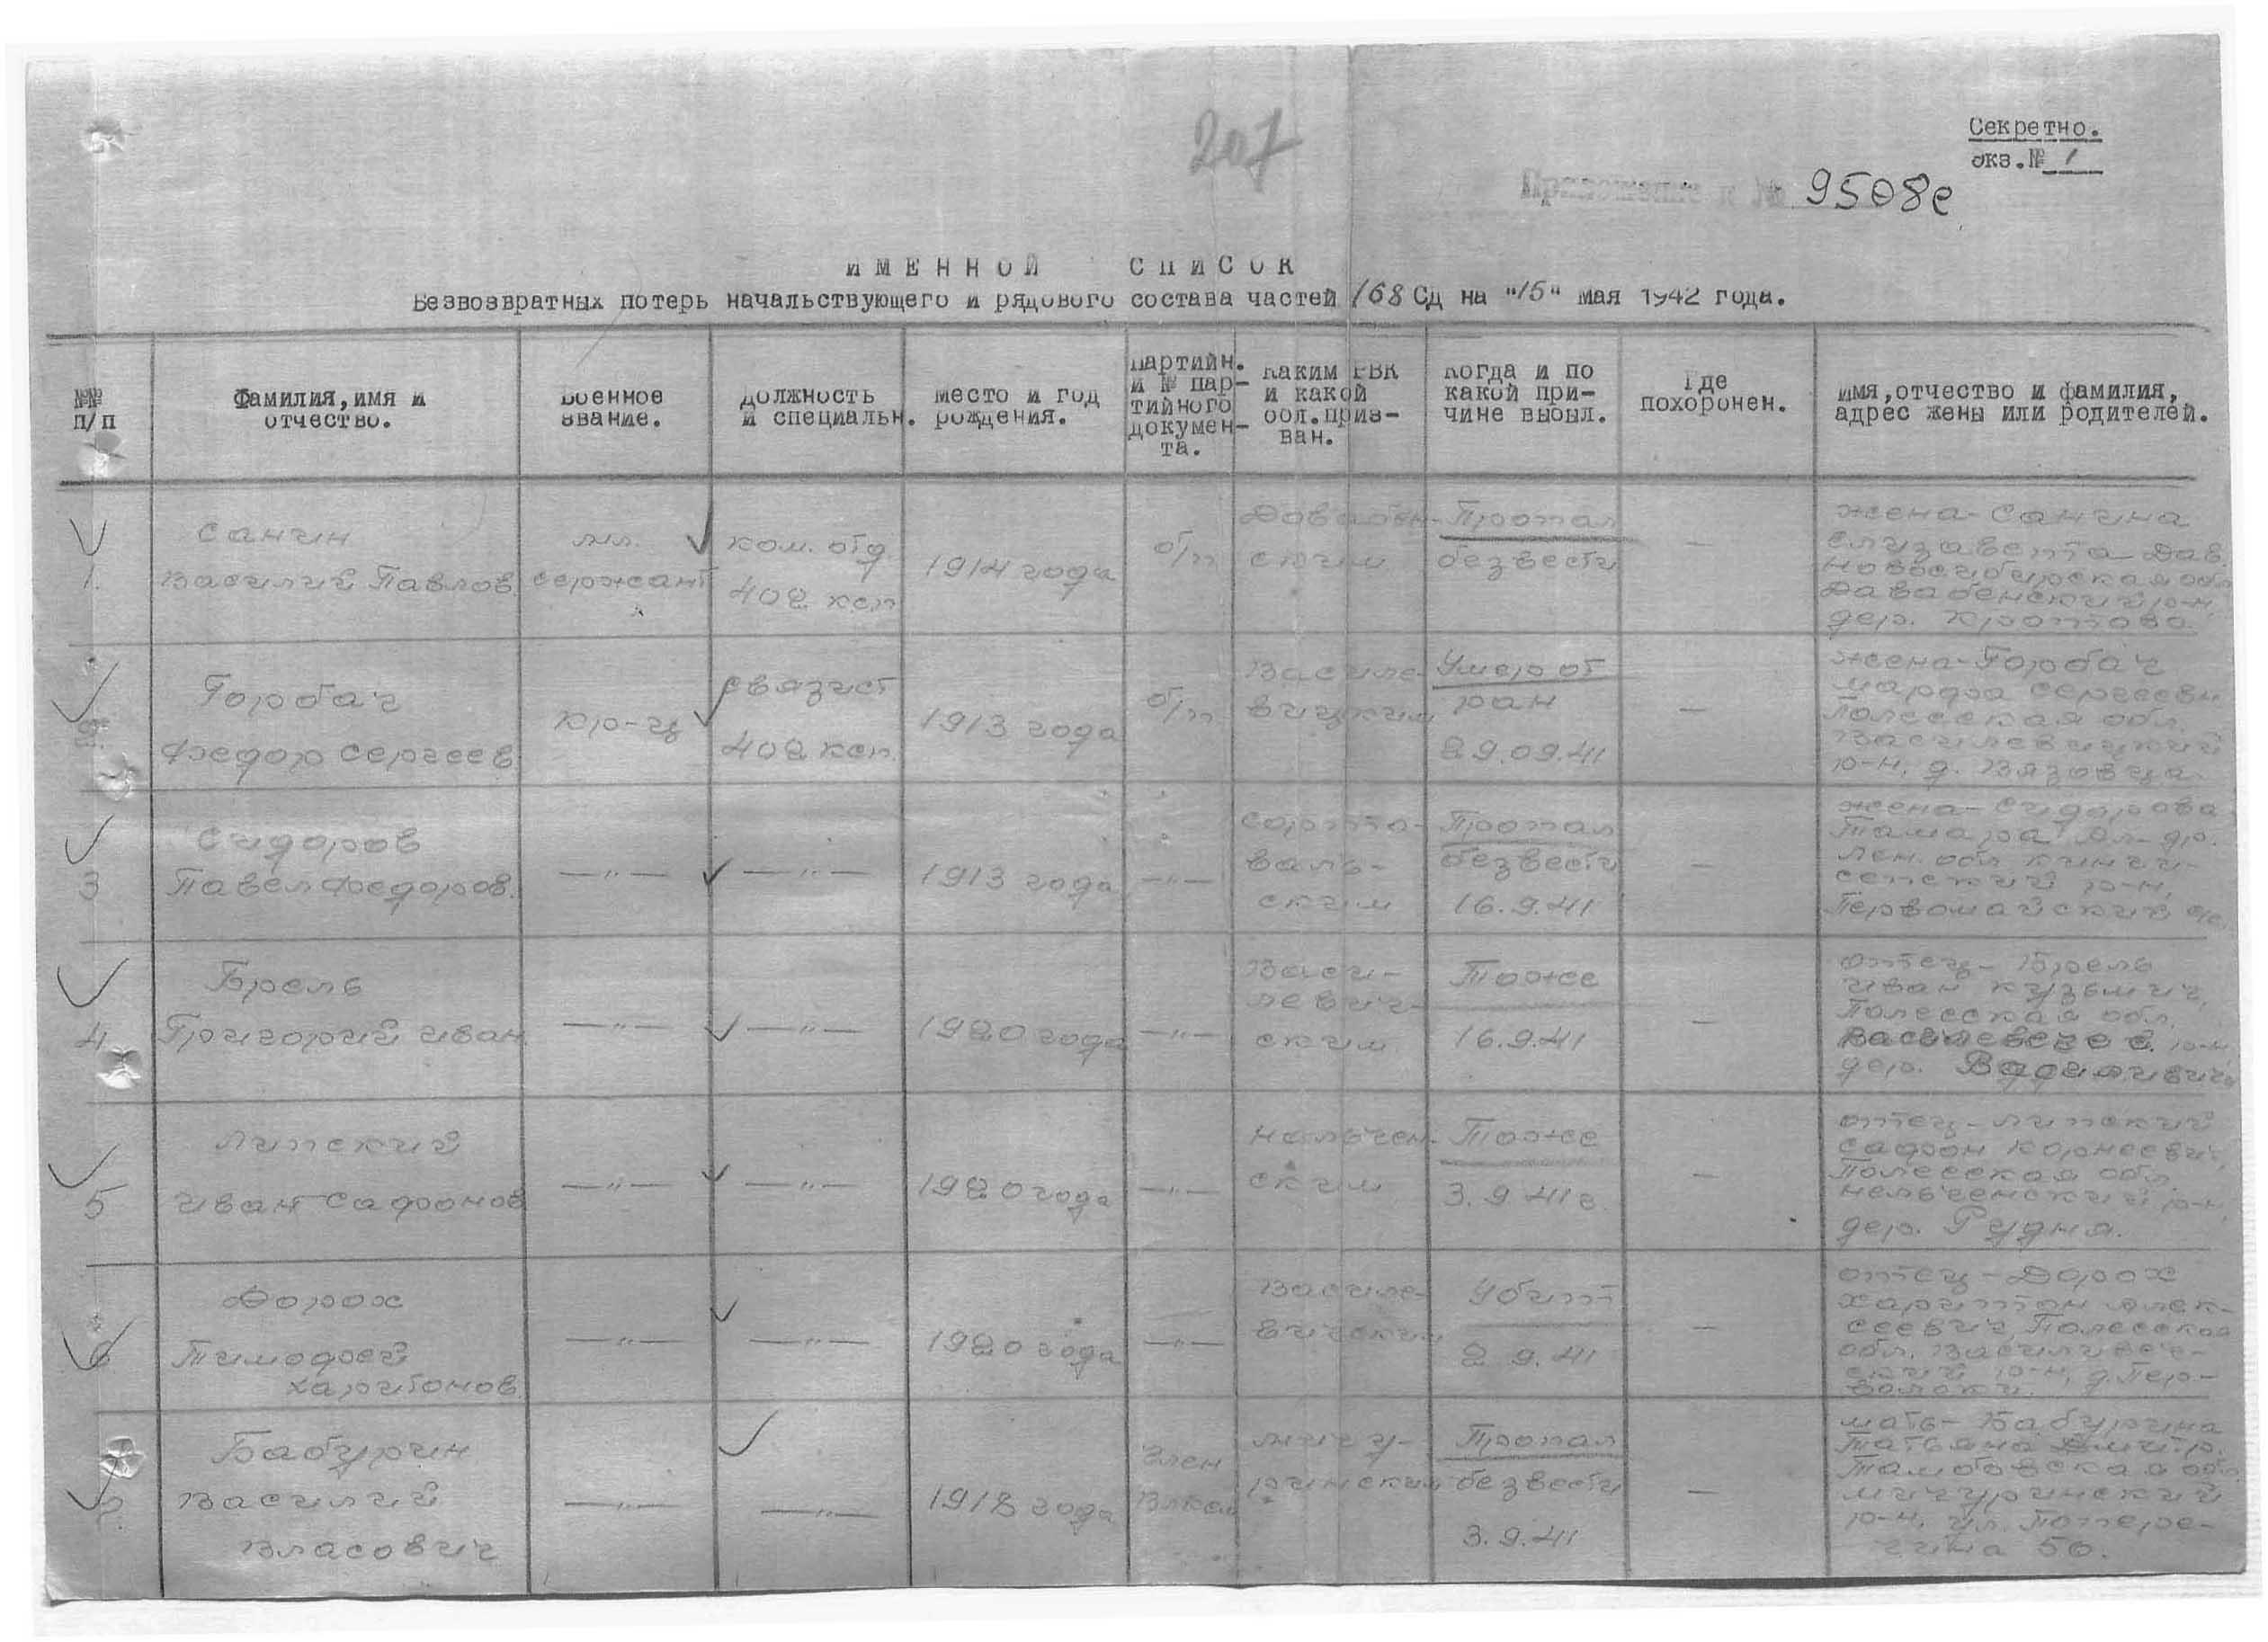 207
Секретно.
экз.№ 1
Приложение к № 9508с
ИМЕННОЙ СПИСОК
Безвозвратных потерь начальствующего и рядового состава частей 168 Сд на "15" мая 1942 года.
№№ п/п
Фамилия, имя и отчество.
Военное звание.
Должность и специальн.
Место и год рождения.
Партийн. и № пар-тийного докумен-та.
Каким РВК и какой обл. приз-ван.
Когда и по какой при-чине выбыл.
Где похоронен.
Имя, отчество и фамилия, адрес жены или родителей.
1.
Сангин
Василий Павлов.
мл.
сержант
ком. отд.
402 ксп
1914 года
б/п
ским
Пропал
безвести
—
жена - Сангина
Елизавета Дав.
Новосибирская обл.
дер. Кротово.
Горбач
Федор Сергеев.
кр-ц
связист
402 ксп
1913 года
б/п
Василе-
вицким
Умер от
ран
29.09.41
—
жена - Горбач
Марфа Сергеевн
Полесская обл.
Василевицкий
р-н, д. Вязовца.
3
Сидоров
Павел Федоров.
—"—
—"—
1913 года
—"—
Сорто-
валь-
ским
Пропал
безвести
16.9.41
—
жена - Сидорова
Тамара Ал-др.
Лен. обл. Кинги-
сепский р-н,
Первомайский с/с
4
Брель
Григорий Иван
—"—
—"—
1920 года
—"—
Васи-
левич-
ским
Тоже
16.9.41
—
отец - Брель
Иван Кузьмич,
Полесская обл.
р-н
дер.
5
Липский
Иван Сафронов
—"—
—"—
1920 года
—"—
ским
Тоже
3.9.41 г.
—
отец - Липский
Сафрон Корнеевич,
Полесская обл.
р-н,
дер. Рудня.
6
Дорох
Тимофей
Харитонов.
—"—
—"—
1920 года
—"—
Василе-
вичским
Убит
2.9.41
—
отец - Дорох
Харитон Алек-
сеевич, Полесская
обл. Василевич-
ский р-н, д. Пер-
волоки.
Бабурин
Василий
Власович
—"—
—"—
1918 года
Член
Влксм
Мичу-
ринским
Пропал
безвести
3.9.41
—
мать - Бабурина
Татьяна Дмитр.
Тамбовская обл.
Мичуринский
р-н, ул.
50.